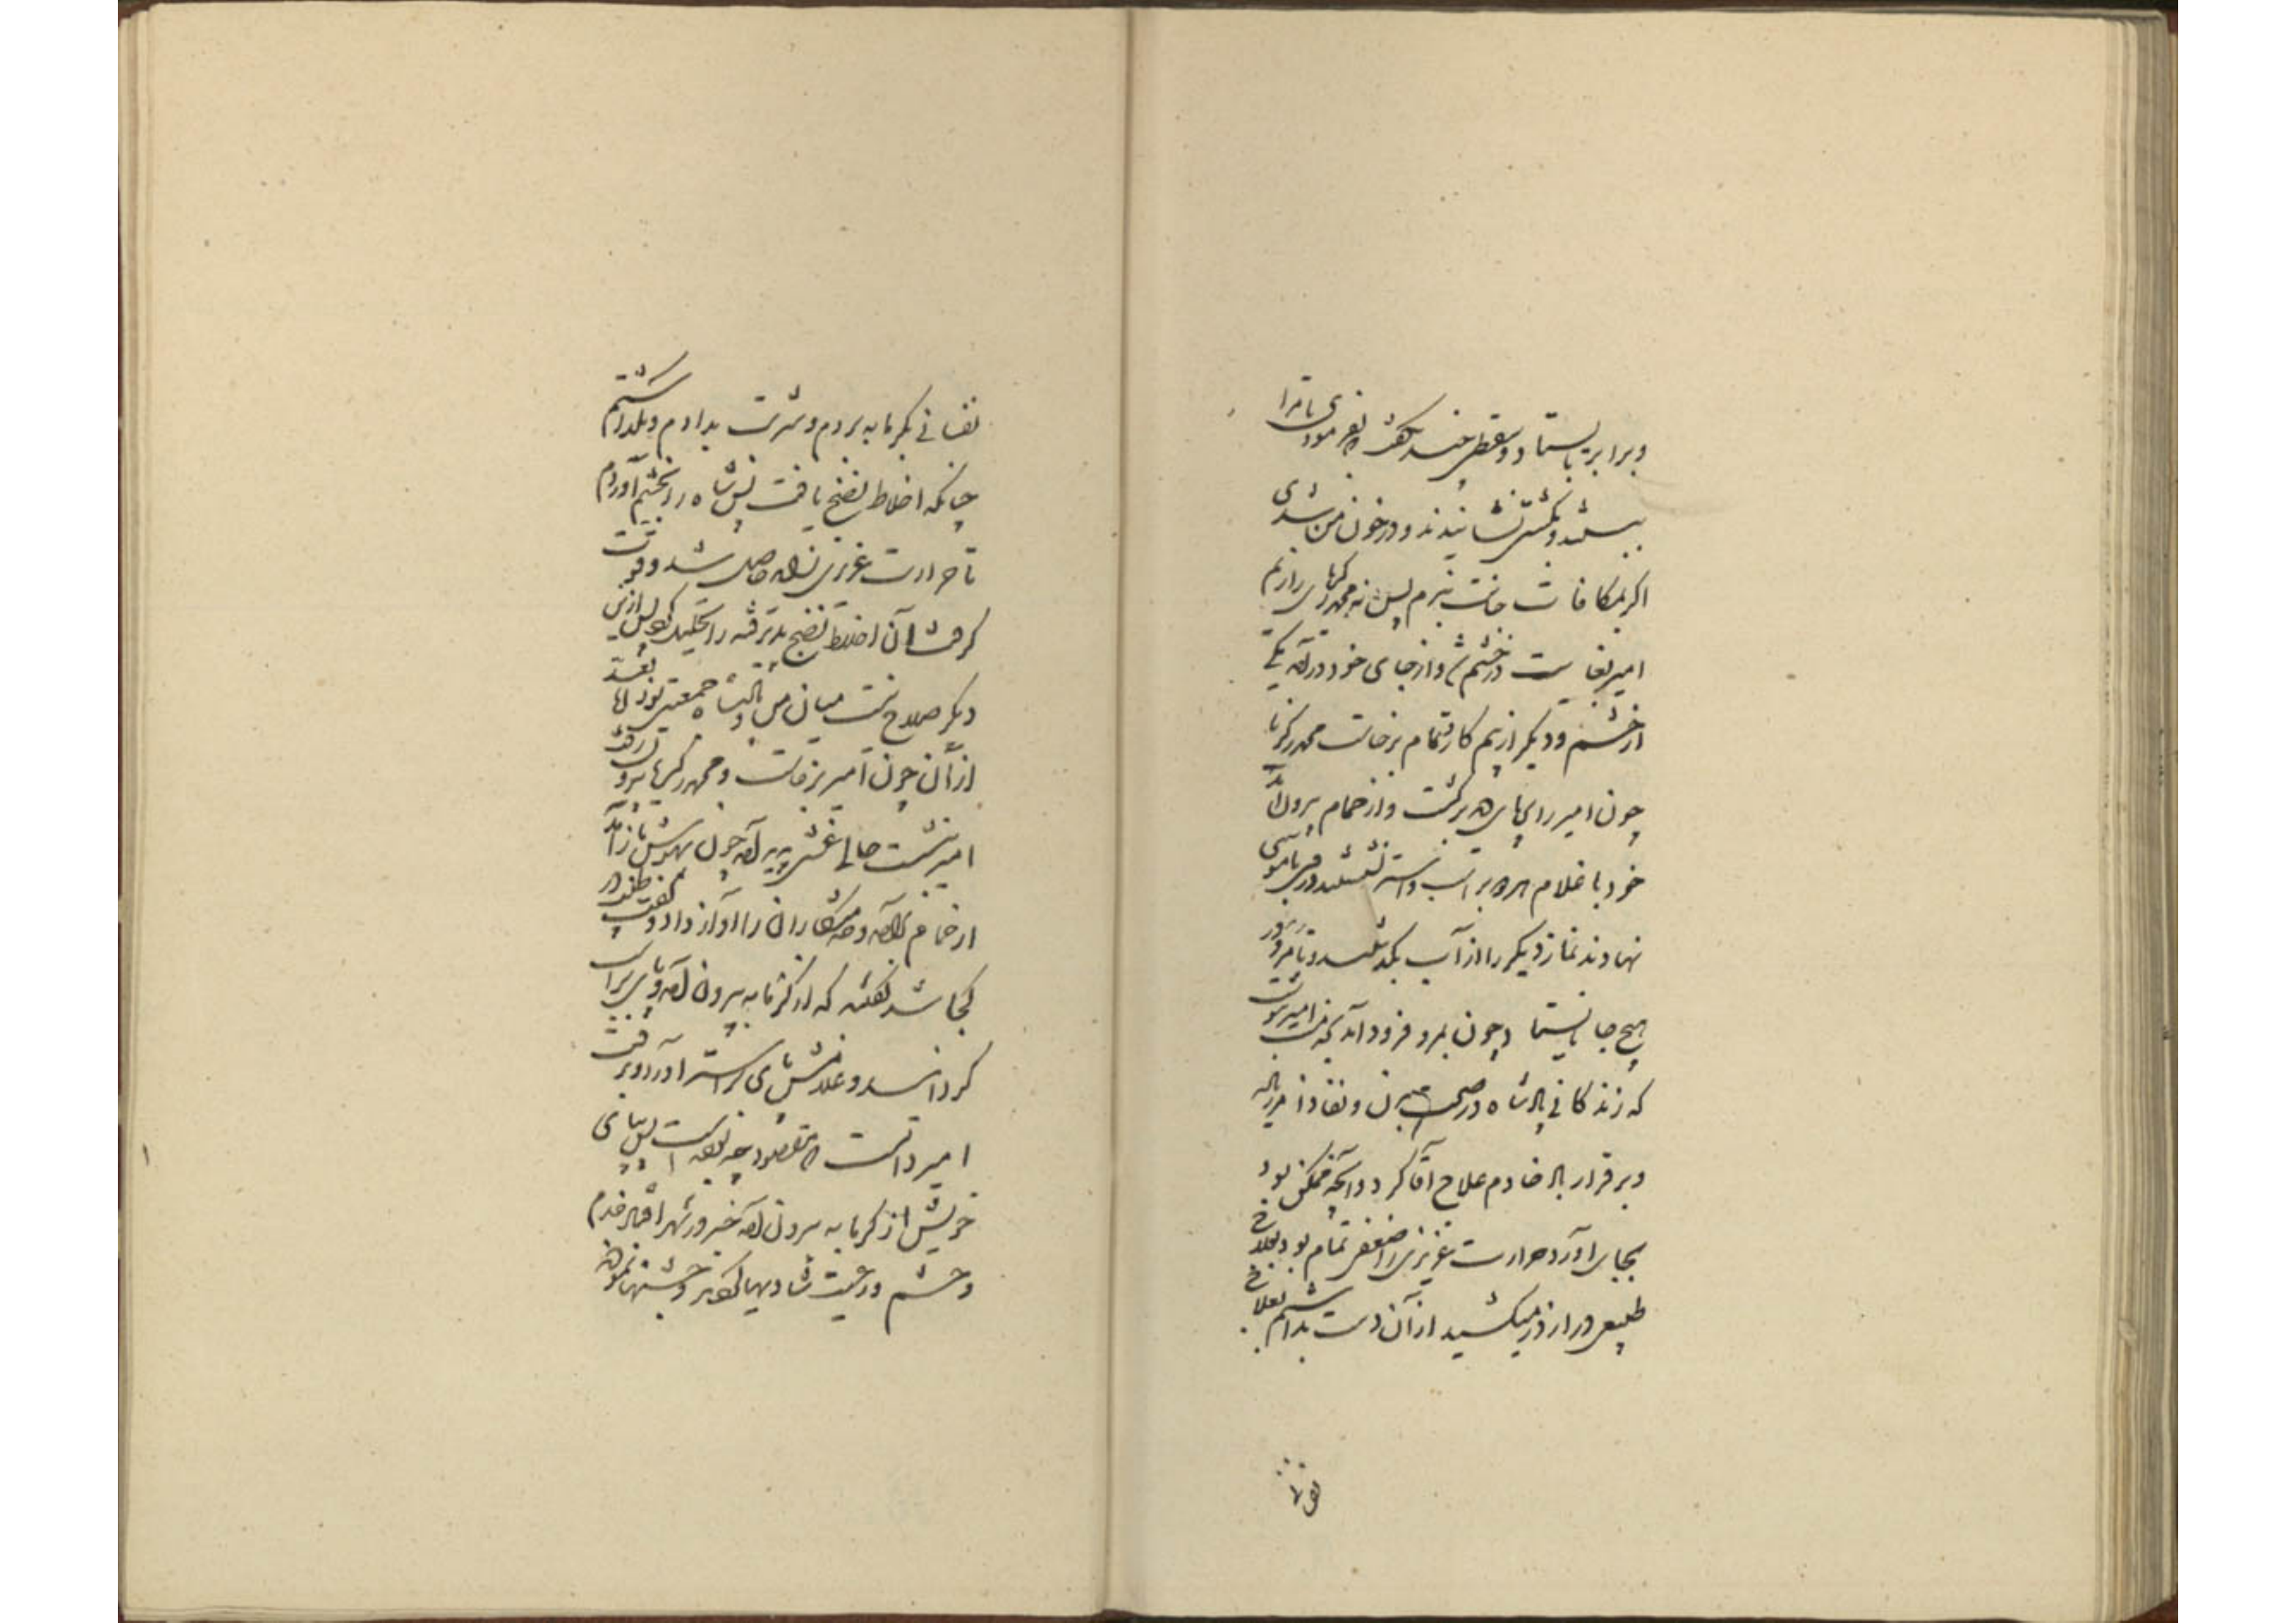 وبرابر بایستاد و سقطی چند بگفت که بفرمودی تا مرا
ببستند و بکشتی نشانیدند و در خون من شدی
اگر بمکافات جانت نبرم پس نه محمد زکریای رازیم
امیر بغایت در خشم شد و از جای خود درآمد یکی
از خشم و دیگر از بیم کارد تمام برخاست محمد زکریا
چون امیر را بپای دید برگشت و از حمام بیرون آمد
خود با غلام هر دو بر اسب و استر نشستند و روی بآموی
نهادند نماز دیگر را از آب بگذشتند و تا مرو
هیچ جا نایستاد چون بمرو فرود آمد بخدمت امیر نوشت
که زندگانی پادشاه در صحت بدن و نفاذ امر باد
و بر قرار باد خادم علاج آغاز کرد و آنچه ممکن بود
بجای آورد حرارت غریزی را ضعفی تمام بود بعلاج
طبیعی دراز در میکشید از آن دست بداشتم بعلاج
نفسانی
نفسانی بگرمابه بردم و شربت بدادم و بگذاشتم
چنانکه اخلاط نضج یافت پس شاه را بخشم آوردم
تا حرارت غریزی را مدد حاصل شد و قوت
گرفت آن اخلاط نضج پذیرفته را تحلیل کرد پس ازین
دیگر صلاح نیست میان من و پادشاه جمعیتی بود اما بعد
از آن چون امیر برخاست و محمد زکریا بیرون رفت
امیر بنشست حالی غشی پدید آمد چون بهوش باز آمد
از حمام برآمد و خدمتکاران را آواز داد و گفت طبیب
کجا شد گفتند که از گرمابه بیرون آمد و پای بر اسب
گردانید و غلامش پای بر استر آورد و برفت
امیر دانست که مقصود چه بوده است پس بپای
خویش از گرمابه بیرون آمد خبر در شهر افتاد خدم
و حشم و رعیت شادیها کردند و جشنها نمودند